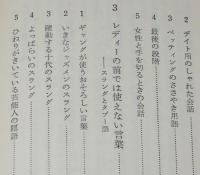 2 デイト用のしゃれた会話
3 ペッティングのささやき用語
4 最後の段階
5 女性と手を切るときの会話
3 レディーの前では使えない言葉
――スラングとタブー語
1 ギャングが使うおそろしい言葉
2 いきなジャズメンのスラング
3 躍動する十代のスラング
4 よっぱらいのスラング
5 ひねりがきいている芸能人の隠語